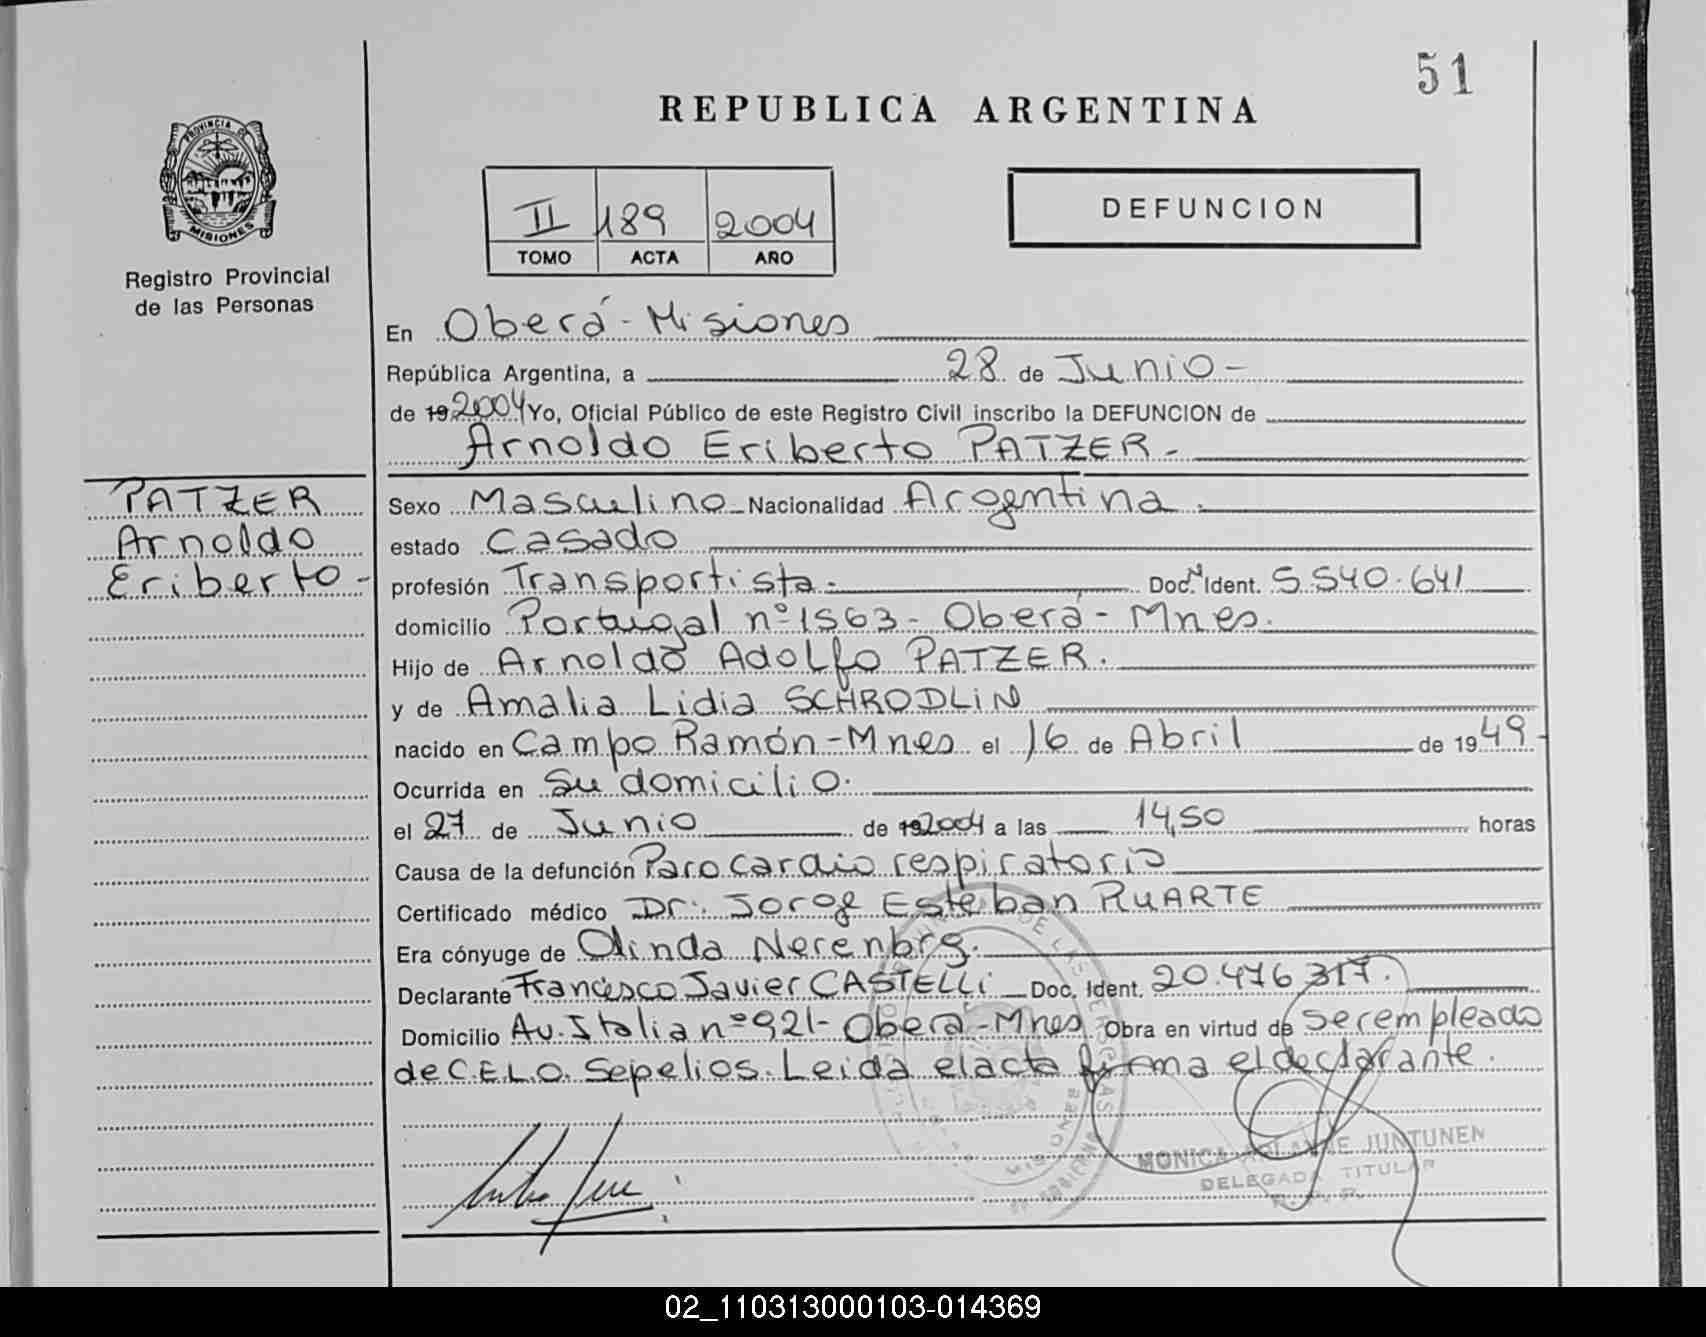 51
REPUBLICA ARGENTINA
PROVINCIA DE
MISIONES
Registro Provincial
de las Personas
II 189 2004
TOMO ACTA AÑO
DEFUNCION
En Oberá - Misiones
República Argentina, a 28 de Junio -
de 19 2004 Yo, Oficial Público de este Registro Civil inscribo la DEFUNCION de
Arnoldo Eriberto PATZER -
PATZER
Arnoldo
Eriberto -
Sexo Masculino - Nacionalidad Argentina.
estado Casado
profesión Transportista - Doc. N Ident. 5.540.641
domicilio Portugal nº 1563 - Oberá - Mnes.
Hijo de Arnoldo Adolfo PATZER.
y de Amalia Lidia SCHRODLIN
nacido en Campo Ramón - Mnes el 16 de Abril de 1949 -
Ocurrida en Su domicilio.
el 27 de Junio de 19 2004 a las 14,50 horas
Causa de la defunción Paro cardio respiratorio
Certificado médico Dr. Jorge Esteban RUARTE
Era cónyuge de Olinda Nerenbrg.
Declarante Francisco Javier CASTELLI - Doc. Ident. 20.476.317.
Domicilio Av. Italia nº 921 - Oberá - Mnes Obra en virtud de ser empleado
de C.E.L.O. Sepelios. Leida el acta firma el declarante.
MONICA JUNTUNEN
DELEGADA TITULAR
02_110313000103-014369